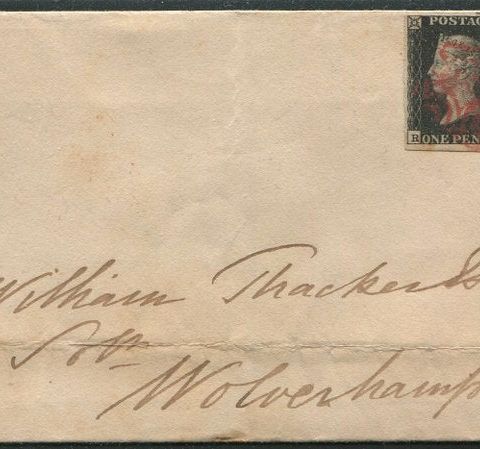 POSTAG
R
ONE PEN
William Thacker Es
Solr
Wolverhamp